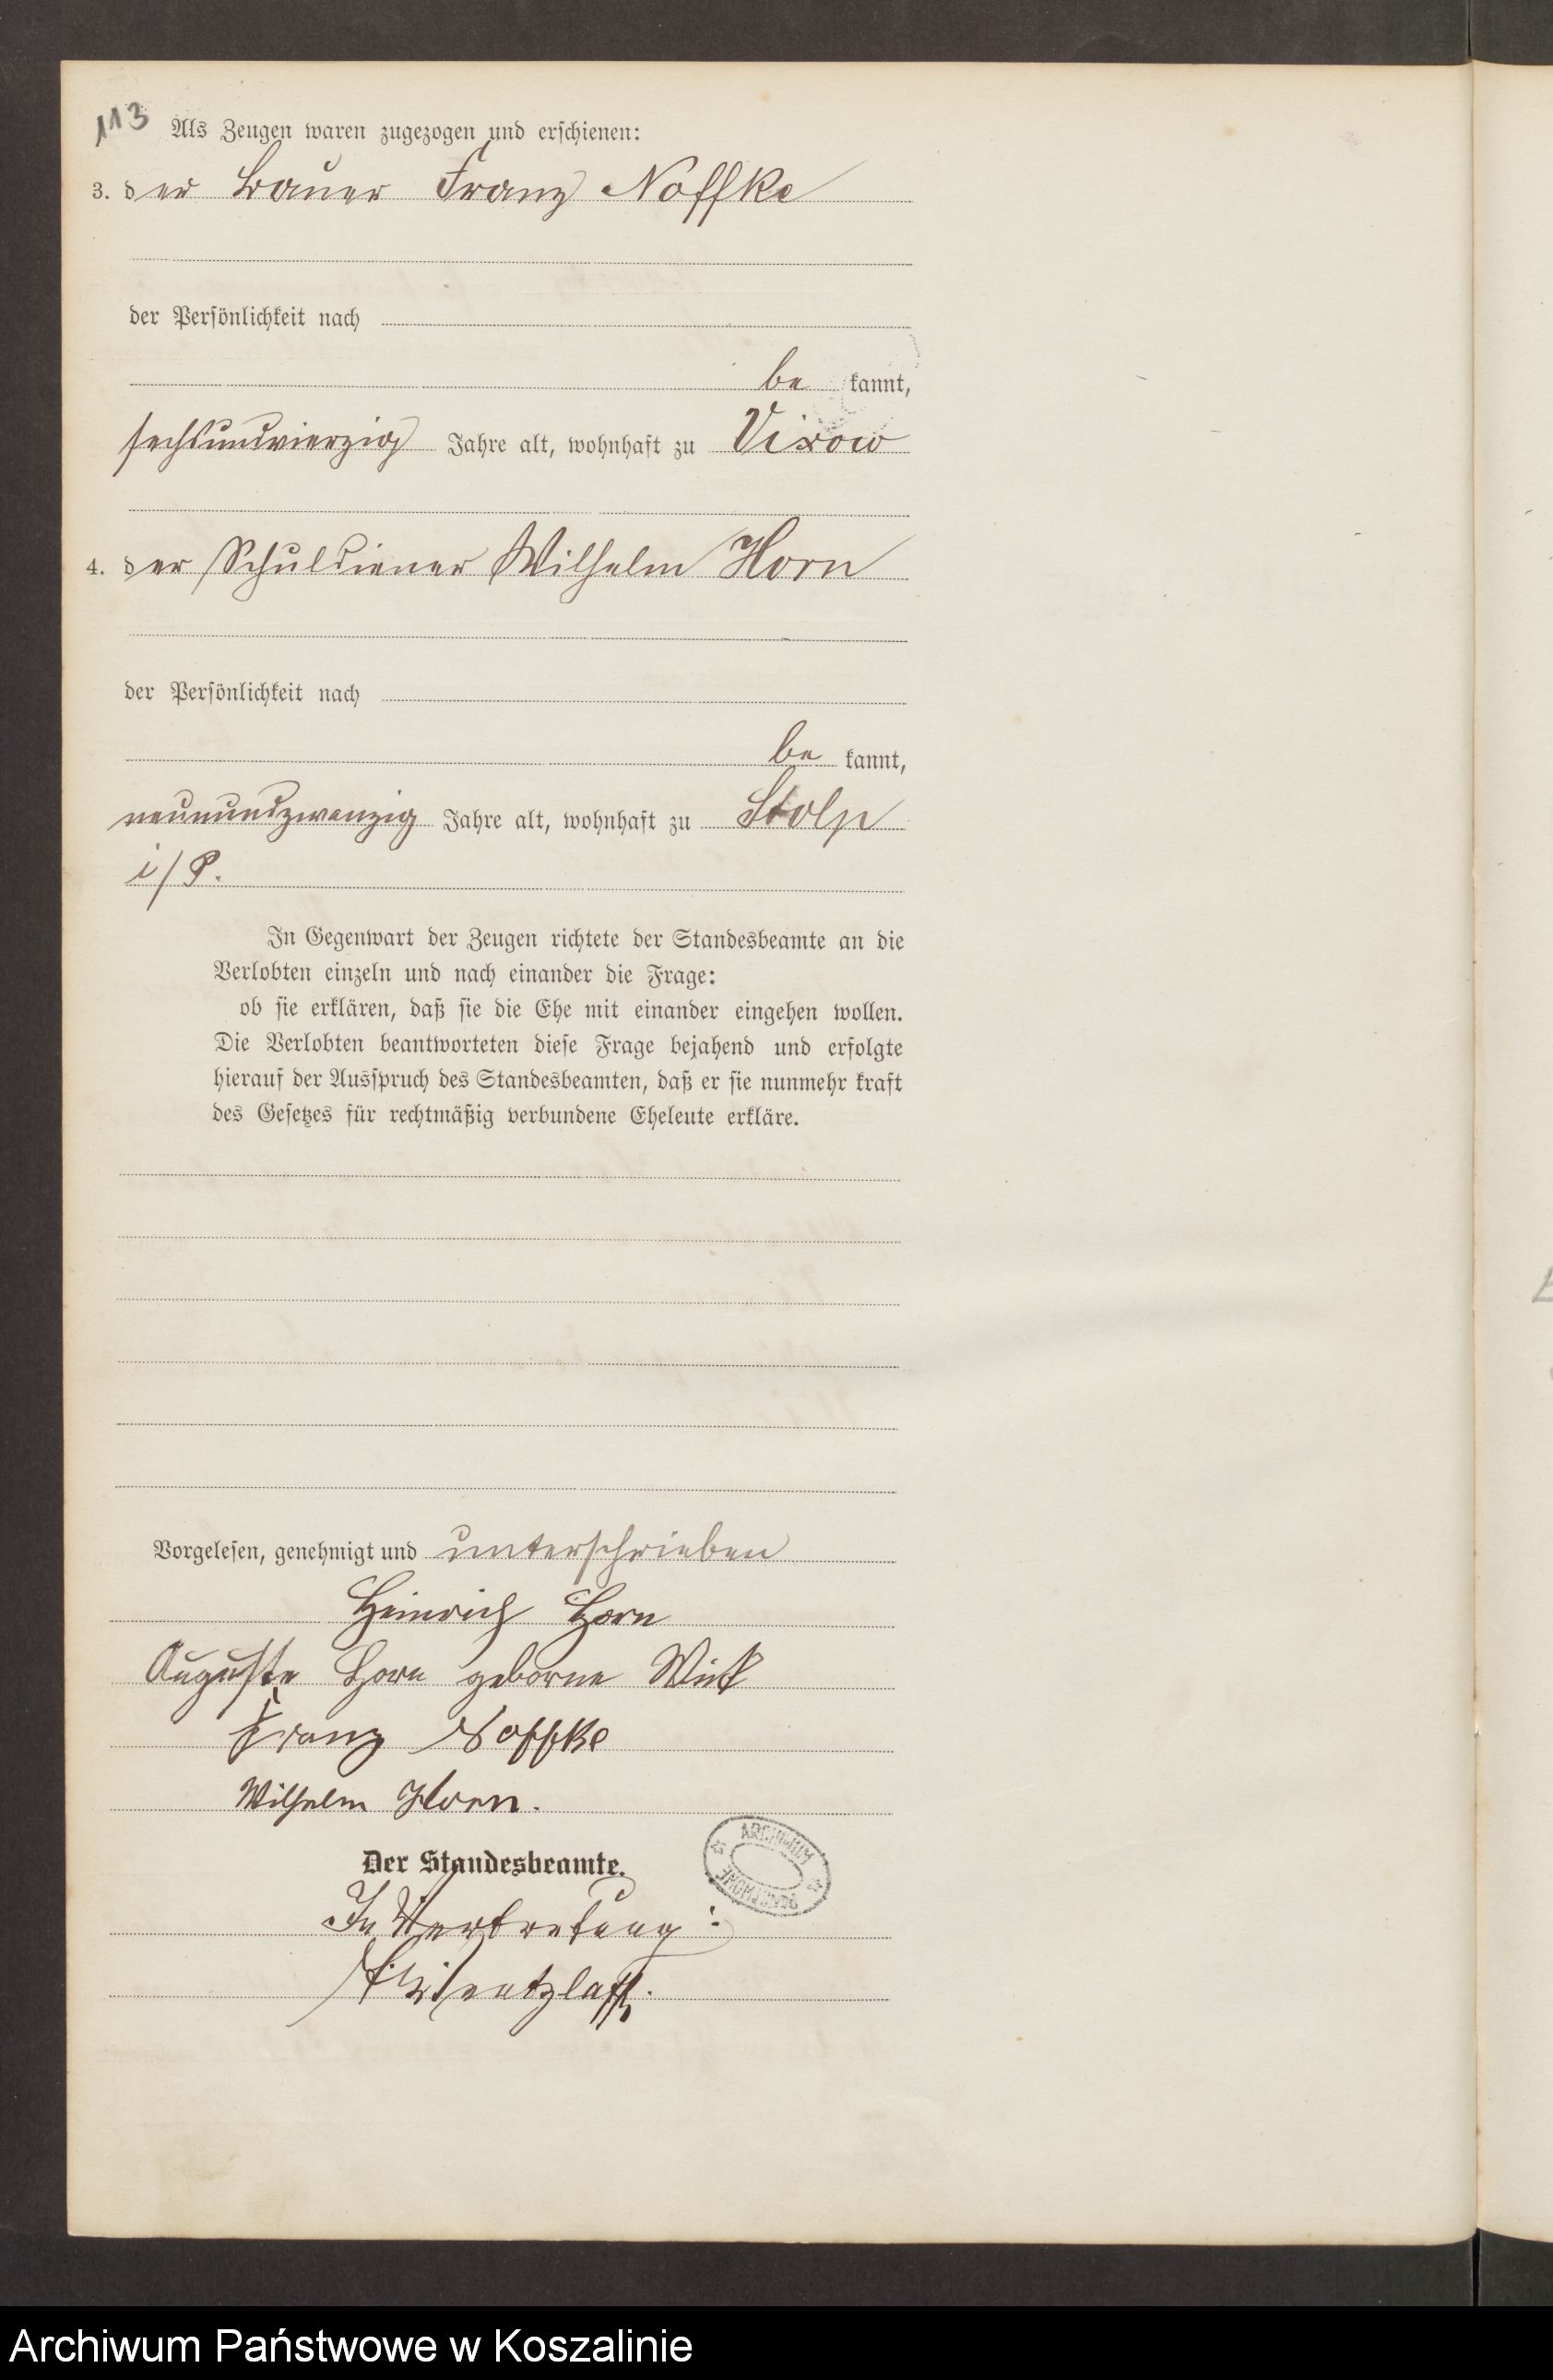 113
Als Zeugen waren zugezogen und erschienen:
3. der Bauer Franz Noffke
der Persönlichkeit nach
be kannt,
sechsundvierzig Jahre alt, wohnhaft zu Vixow
4. der Schuldiener Wilhelm Horn
der Persönlichkeit nach
be kannt,
neunundzwanzig Jahre alt, wohnhaft zu Stolp
i/P.
In Gegenwart der Zeugen richtete der Standesbeamte an die
Verlobten einzeln und nach einander die Frage:
ob sie erklären, daß sie die Ehe mit einander eingehen wollen.
Die Verlobten beantworteten diese Frage bejahend und erfolgte
hierauf der Ausspruch des Standesbeamten, daß er sie nunmehr kraft
des Gesetzes für rechtmäßig verbundene Eheleute erkläre.
Vorgelesen, genehmigt und unterschrieben
Heinrich Horn
Auguste Horn geborne Wick
Franz Noffke
Wilhelm Horn.
ARCHIWUM
Der Standesbeamte.
In Vertretung:
Archiwum Państwowe w Koszalinie